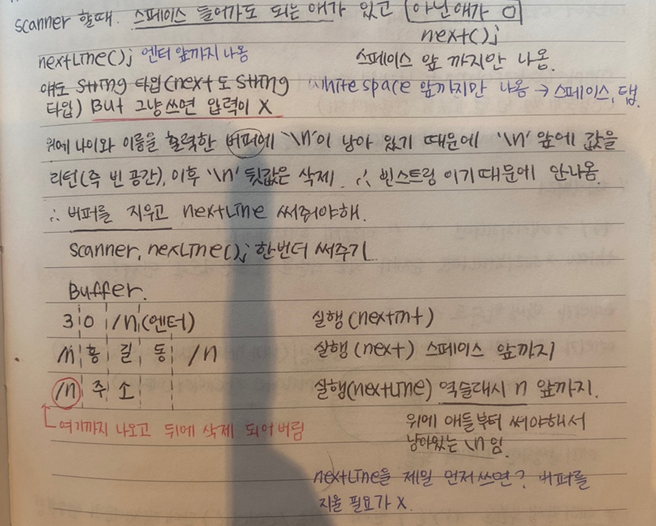 scanner 할때. 스페이스 들어가도 되는 애가 있고 아닌애가 O
next();
nextLine(); 엔터 앞까지 나옴
스페이스 앞 까지만 나옴.
얘도 String 타입(next도 String
white space 앞까지만 나옴 → 스페이스, 탭.
타입) But 그냥쓰면 입력이 X
위에 나이와 이름을 출력한 버퍼에 '\n'이 남아 있기 때문에 '\n' 앞에 값을
리턴(즉 빈 공간), 이후 '\n' 뒷값은 삭제. ∴ 빈스트링 이기때문에 안나옴.
∴ 버퍼를 지우고 nextLine 써줘야해.
scanner.nextLine(); 한번더 써주기.
Buffer.
3 0 /n(엔터) 실행 (nextInt)
/n 홍 길 동 /n 실행 (next) 스페이스 앞까지
/n 주 소 실행(nextLine) 역슬래시 n 앞까지.
여기까지 나오고 뒤에 삭제 되어버림
위에 애들부터 써야해서
남아있는 \n 임.
nextLine을 제일 먼저쓰면? 버퍼를
지울 필요가 X.